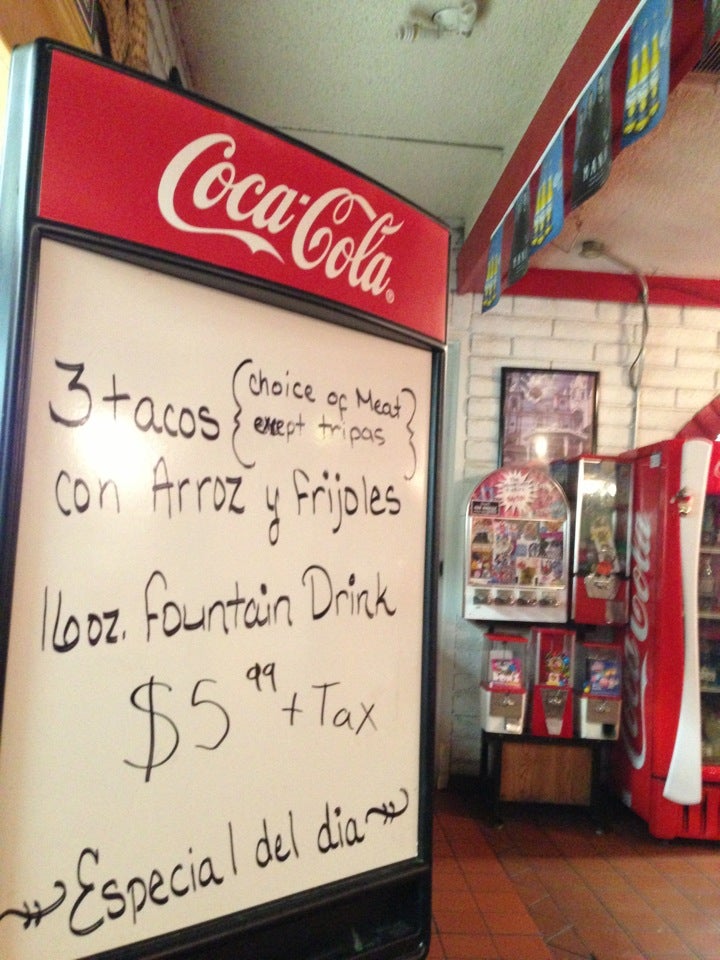 Coca-Cola®
3 tacos {choice of Meat
except tripas}
con Arroz y frijoles
16 oz. fountain Drink
$5 99 + Tax
Especial del dia
Coca-Cola